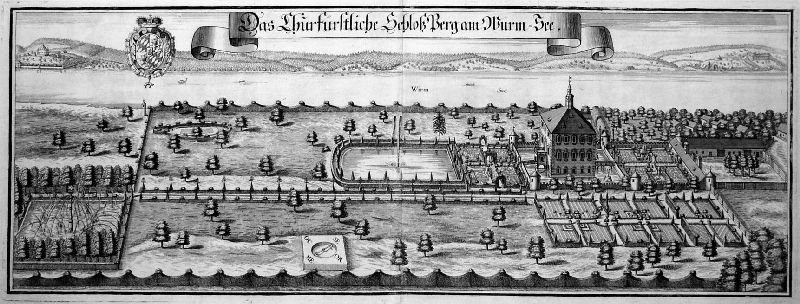 Das Churfürstliche Schloß Berg am Wurm-See.
Würm See